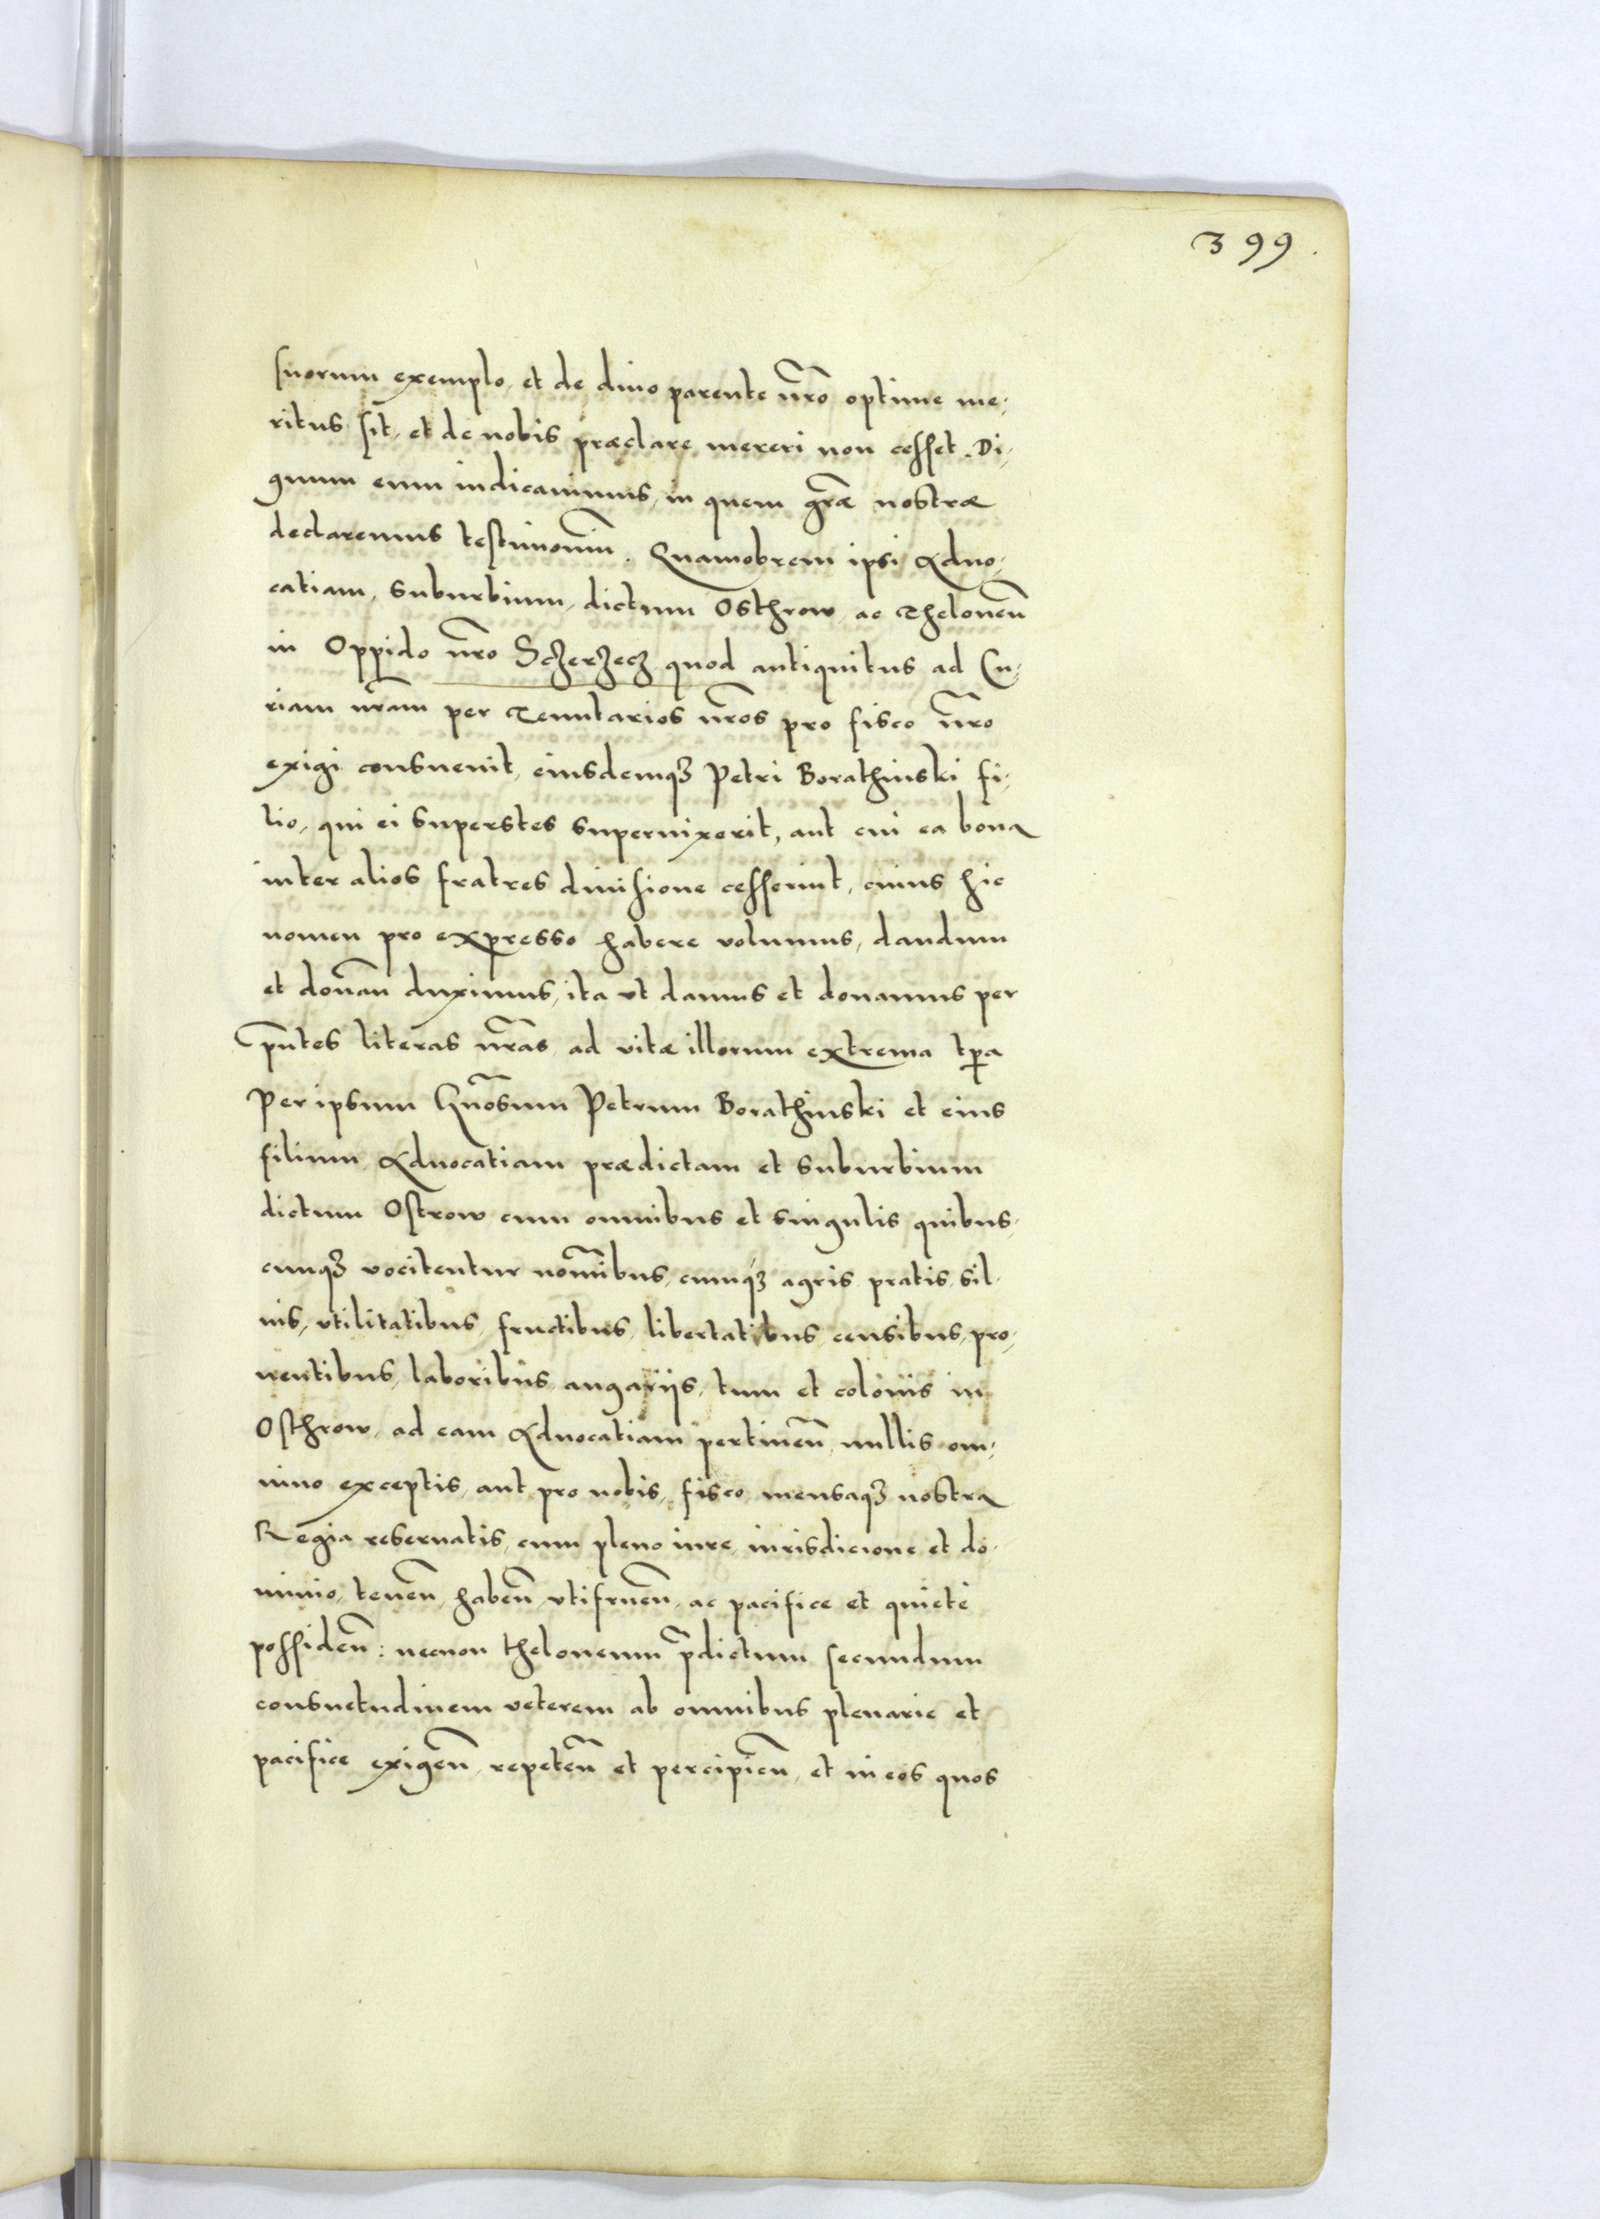 399.
suorum exemplo, et de diuo parente nr̃o optime me,
ritus sit, et de nobis præclare mereri non cesset. Di,
gnum eum iudicauimus, in quem gr̃æ nostræ
declaremus testimoniũ. Quamobrem ipsi Aduo,
catiam, suburbium, dictum Osthrow, ac Theloneũ
in Oppido nr̃o Sczerzecz quod antiquitus ad Cu,
riam nr̃am per Tenutarios nr̃os pro fisco nr̃o
exigi consueuit, eiusdemqꝫ Petri Borathinski fi,
lio, qui ei superstes superuixerit, aut cui ea bona
inter alios fratres diuisione cesserint, cuius hic
nomen pro expresso habere volumus, dandum
et donañ duximus, ita vt damus et donamus per
p̃ntes literas nr̃as ad vitæ illorum extrema tp̃a
Per ipsum Gñosum Petrum Borathinski et eius
filium Aduocatiam prædictam et suburbium
dictum Ostrow cum omnibus et singulis quibus,
cumqꝫ vocitentur nomĩbus, cumqꝫ agris pratis sil,
uis, vtilitatibus, fructibus, libertatibus, censibus, pro,
uentibus, laboribus, angariis, tum et colonis in
Osthrow, ad eam Aduocatiam pertineñ, nullis om,
nino exceptis, aut pro nobis, fisco, mensaqꝫ nostra
Regia reseruatis, cum pleno iure, iurisdicione et do,
minio, teneñ, habeñ, vtifrueñ, ac pacifice et quiete
possideñ: necnon theloneum p̃dictum secundum
consuetudinem veterem ab omnibus plenarie et
pacifice exigeñ, repeteñ et percipieñ, et in eos quos